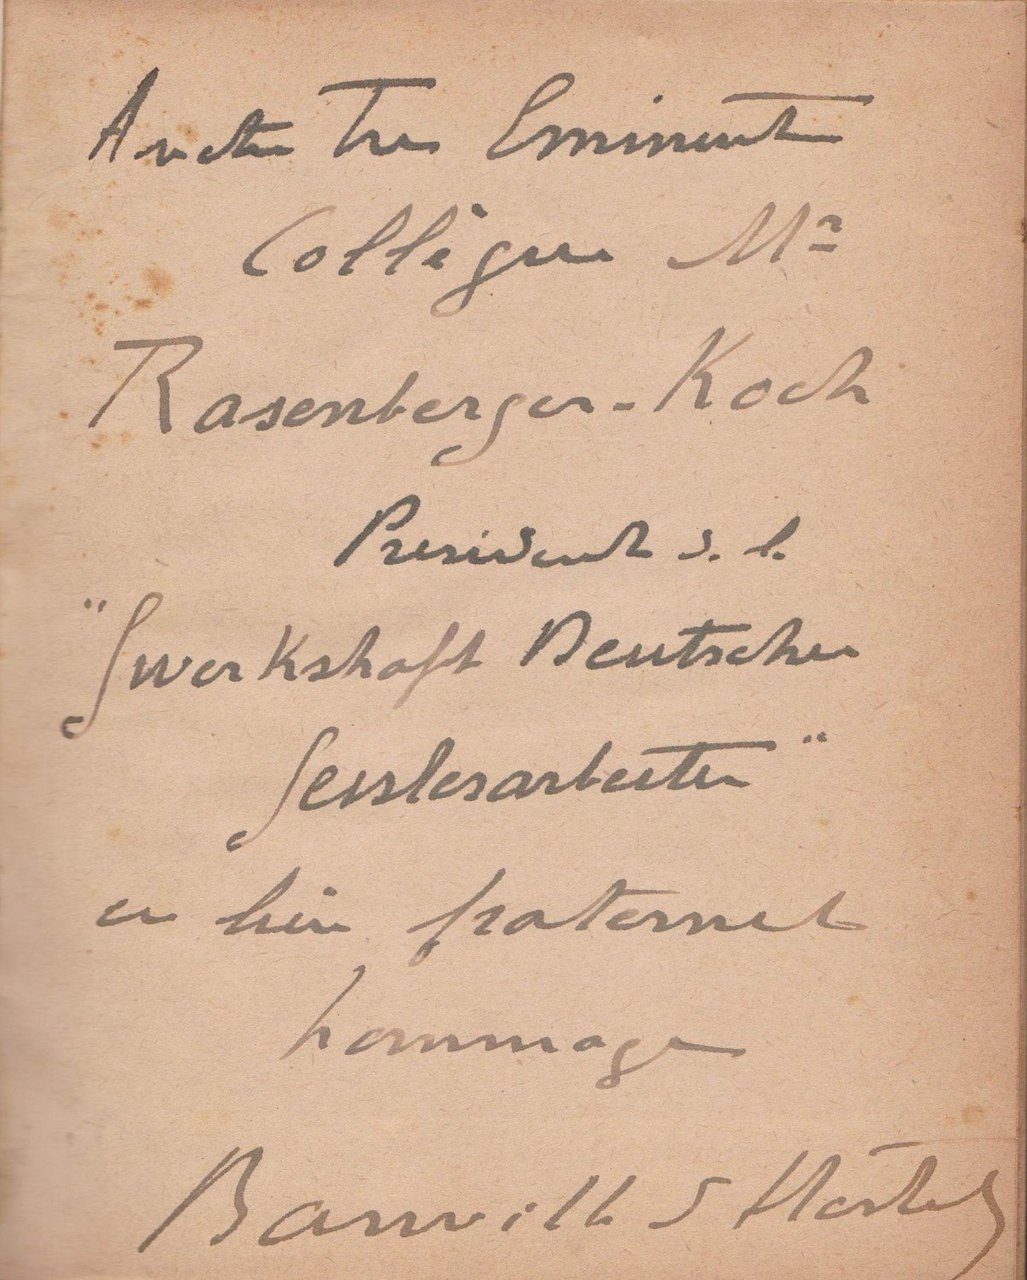 A notre Tres Eminent
Collègue Mr
Rasenberger-Koch
President d. l.
"Gwerkshaft Deutscher
Geistesarbeiter"
en bien fraternel
hommage
Banville d'Hostel